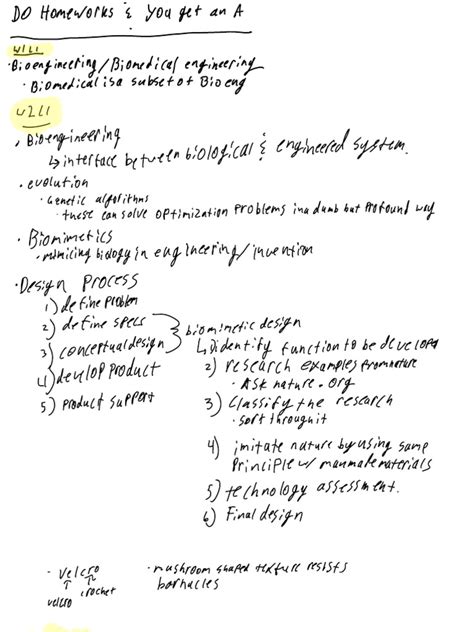 DO Homeworks & You get an A
W1L1
• Bioengineering / Biomedical engineering
• Biomedical is a subset of Bioeng
W2L1
• Bioengineering
↳ interface between biological & engineered system.
• evolution
• Genetic algorithms
• these can solve optimization problems in a dumb but profound way
• Biomimetics
• mimicing biology in engineering / invention
• Design Process
1) define problem
2) define specs
3) conceptual design
4) develop product
5) product support
biomimetic design
↳ 1) identify function to be developed
2) research examples from nature
• Ask nature.org
3) Classify the research
• sort through it
4) imitate nature by using same
Principle w/ manmade materials
5) technology assessment.
6) Final design
• velcro
velcro
crochet
• mushroom shaped texture resists
barnacles